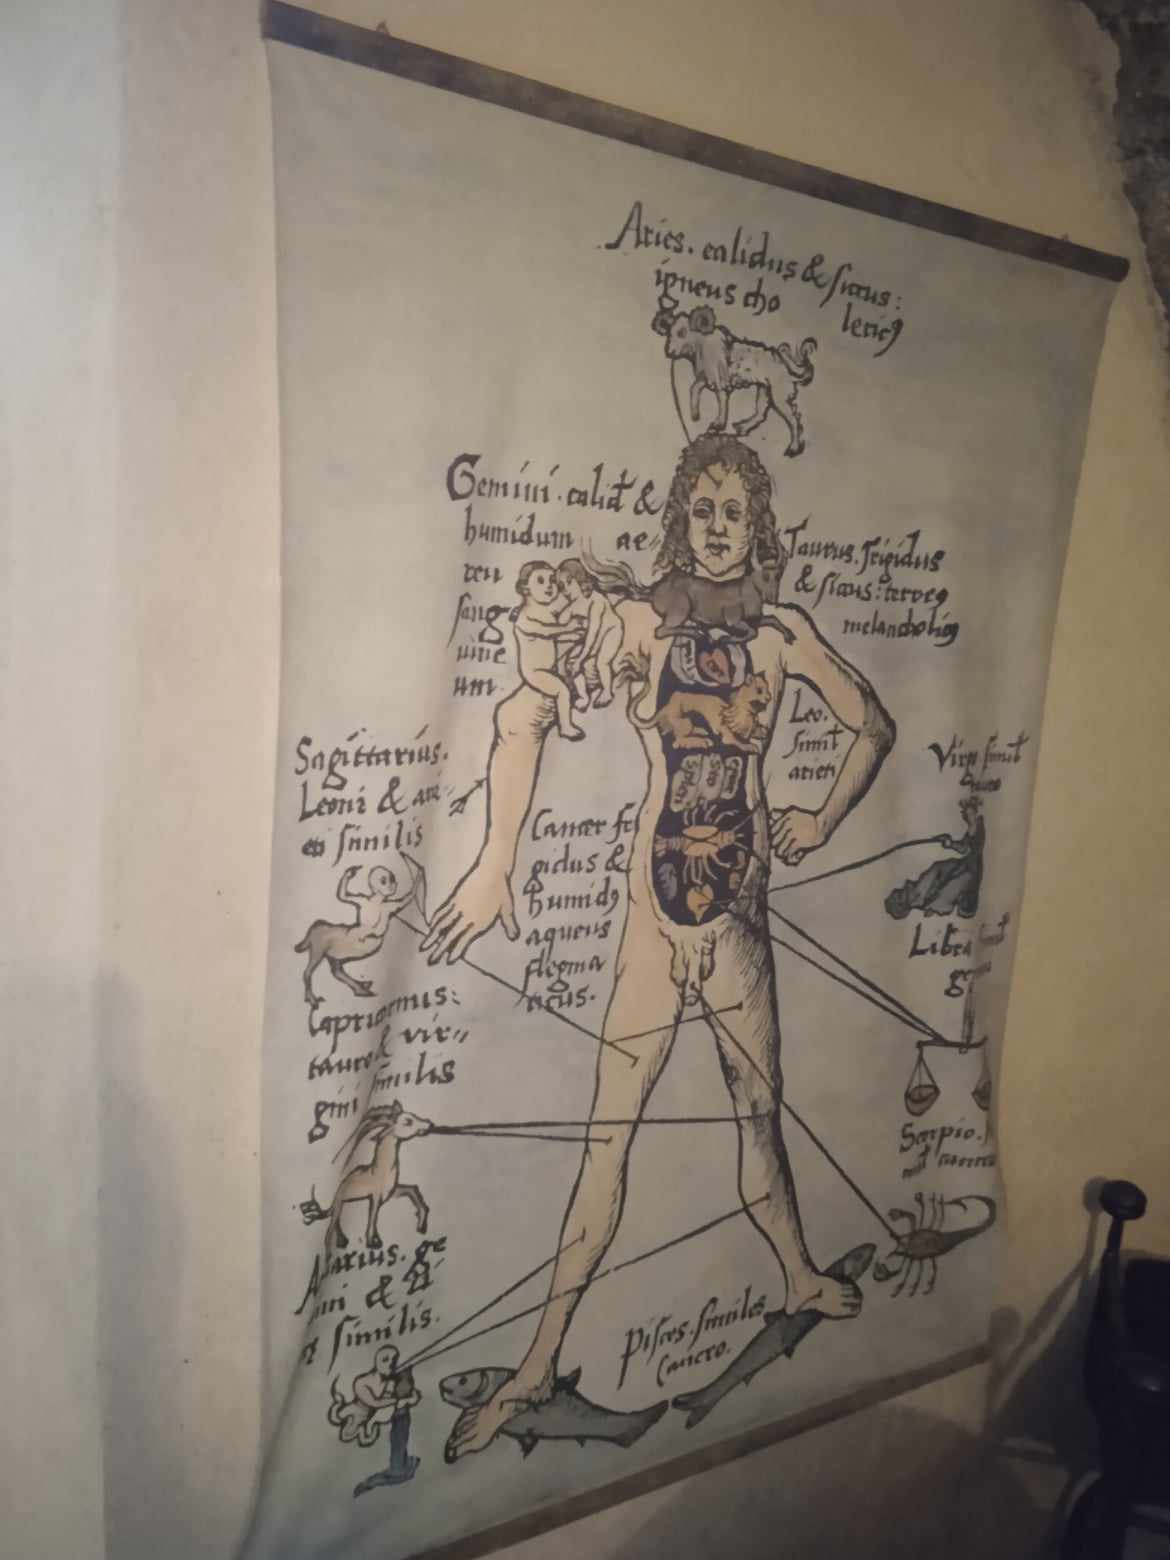 Aries. calidus & siccus:
igneus cho
leric9
Gemini. calid &
humidum ae
reu
sang
uine
um.
Taurus. frigidus
& sicus: terre9
melancholic9
Leo.
simil
arieti
Sagittarius.
Leoni & ari
eti similis
Cancer fri
gidus &
humid9
aqueus
flegma
ticus.
Virgo simil
tauro
Libra simil
Capricornus:
tauro & vir
gini similis
Scorpio.
cancro
Aquarius. ge
mini & li
similis.
Pisces. similes
Cancro.